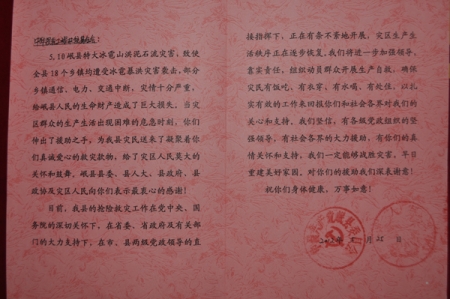 5.10岷县特大冰雹山洪泥石流灾害，致使
全县18个乡镇均遭受冰雹暴洪灾害袭击，部分
乡镇通信、电力、交通中断，灾情十分严重，
给岷县人民的生命财产造成了巨大损失。当灾
区群众的生产生活出现困难的危急时刻，你们
伸出了援助之手，为我县灾民送来了凝聚着你
们真诚爱心的救灾款物，给了灾区人民莫大的
关怀和鼓舞，岷县县委、县人大、县政府、县
政协及灾区人民向你们表示最衷心的感谢！
目前，我县的抢险救灾工作在党中央、国
务院的深切关怀下，在省委、省政府及有关部
门的大力支持下，在市、县两级党政领导的直
接指挥下，正在有条不紊地开展，灾区生产生
活秩序正在逐步恢复。我们将进一步加强领导，
靠实责任，组织动员群众开展生产自救，确保
灾民有饭吃，有衣穿，有水喝，有处住，以扎
实有效的工作来回报你们和社会各界对我们的
关心和支持。我们坚信，有各级党政组织的坚
强领导，有社会各界的大力援助，有你们的真
情关怀和支持，我们一定能够战胜灾害，早日
重建美好家园，对你们的援助我们深表谢意！
祝你们身体健康，万事如意！